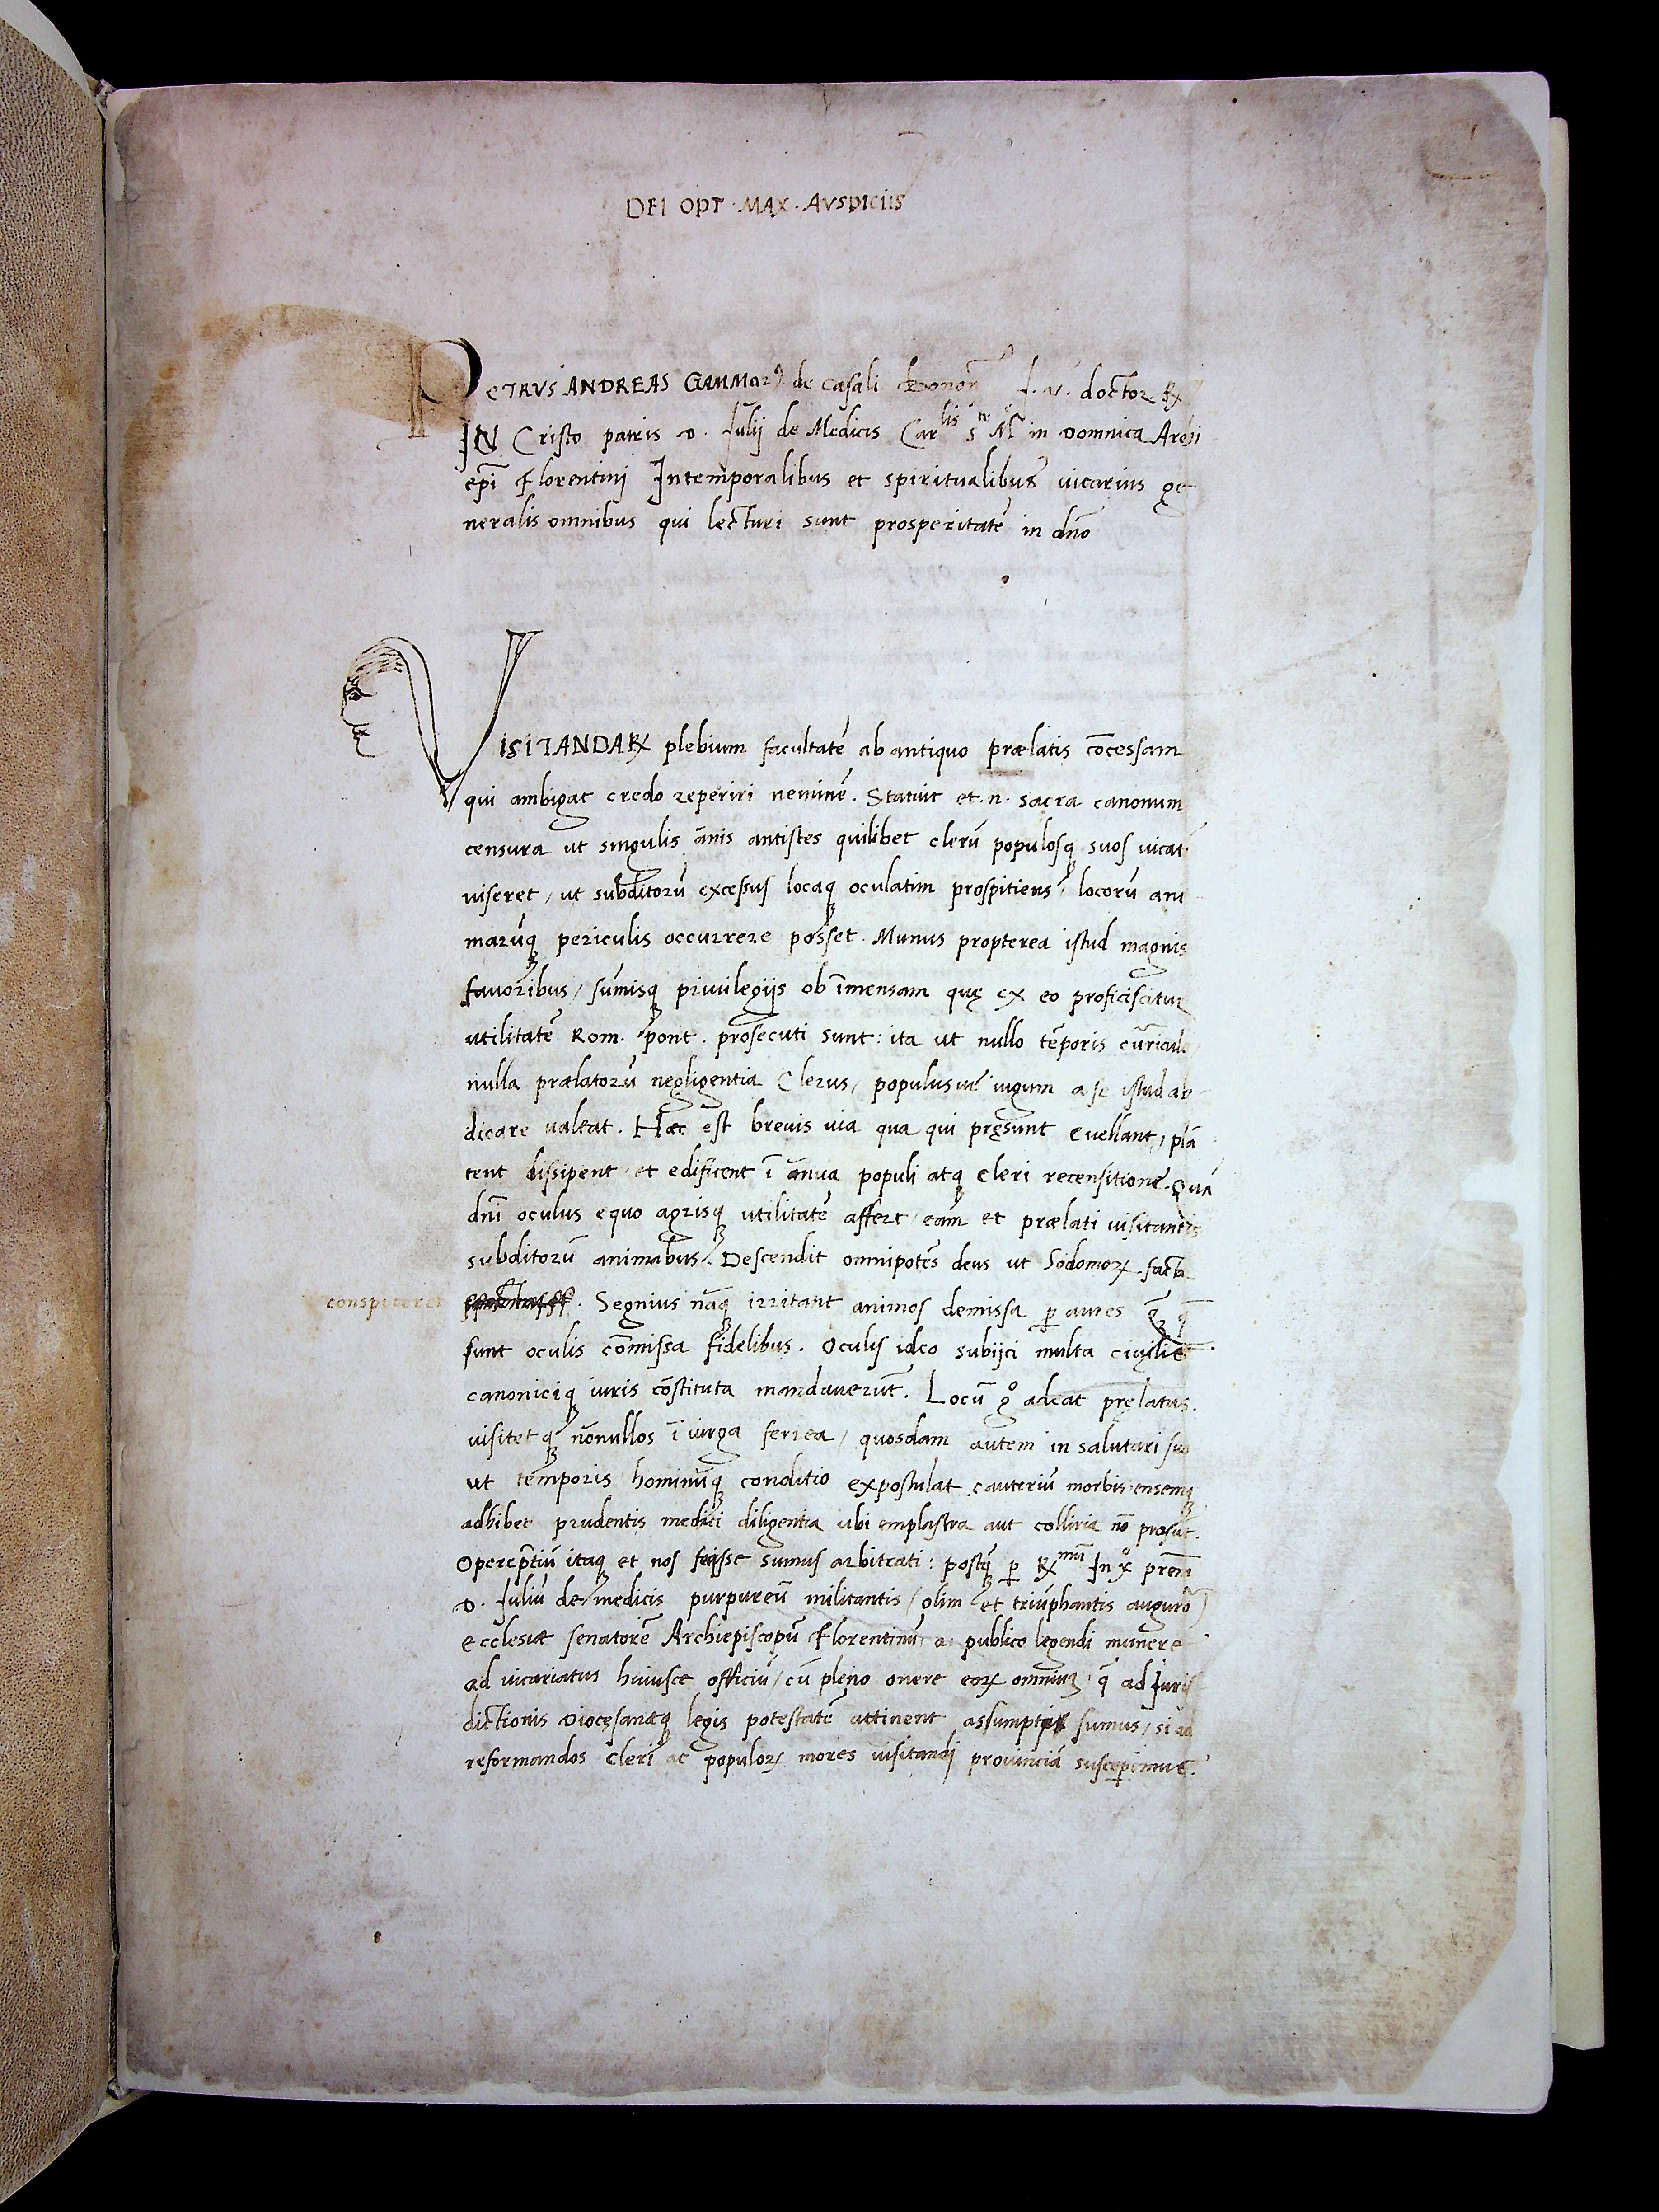 DEI OPT · MAX · AVSPICIIS
PETRVS ANDREAS GAMMARꝰ de casali bonoñ J. V. doctor Rx
IN Cristo patris D. Julij de Medicis Carlis Ste M̃ in Domnica Archi
epĩ Florentinj Intemporalibus et spiritualibus uicarius ge
neralis omnibus qui lecturi sunt prosperitatē in dño
VISITANDARꝝ plebium facultatē ab antiquo prælatis cōcessam
qui ambigat credo reperiri neminē. Statuit et.n. sacra canonum
censura ut singulis ānis antistes quilibet clerū populosqꝫ suos uicat
uiseret / ut subditorū excessus locaqꝫ oculatim prospitiens / locorū ani
marūqꝫ periculis occurrere posset. Munus propterea istud magnis
fauoribus / sūmisqꝫ priuilegijs ob īmensam quę ex eo proficiscitur
utilitatē Rom. pont. prosecuti sunt: ita ut nullo tēporis cūriculo
nulla prælatorū negligentia Clerus / populusue iugum a se istud ab
dicare ualeat. Hæc est breuis uia qua qui pręsunt euellant / plā
tent dissipent et edificent ī ānua populi atqꝫ cleri recensitione. Quā
dñi oculus equo agrisqꝫ utilitatē affert / eam et prælati uisitantis
subditorū animabus. Descendit omnipotēs deus ut Sodomoꝝ facta
conspiceret . Segnius nāqꝫ irritant animos demissa ꝑ aures qꝫ̃ q̄
sunt oculis cōmissa fidelibus. Oculis ideo subijci multa ciuilis
canoniciqꝫ iuris cōstituta mandauerūt. Locū gͦ adeat pręlatus.
uisitetqꝫ nōnullos ī uirga ferrea / quosdam autem in salutari suo
ut temporis hominūqꝫ conditio expostulat cauteriū morbis ensemqꝫ
adhibet prudentis medici diligentia ubi emplastra aut colliria nō prosūt.
Opereptiū itaqꝫ et nos fecisse sumus arbitrati: postqꝫ ꝑ Rxmū In xͦ prem̄
D. Juliū de medicis purpureū militantis / olim et triūphantis auguro)
ecclesiæ senatorē Archiepiscopū Florentinū a publico legendi munere
ad uicariatus huiusce officiū / cū pleno onere eoꝝ omniuꝫ q̄ ad Juris
dictionis Diocęsanæqꝫ legis potestatē attinent sumus / si ad
reformandos cleri ac populoꝝ mores uisitandj prouinciā susceperimus.